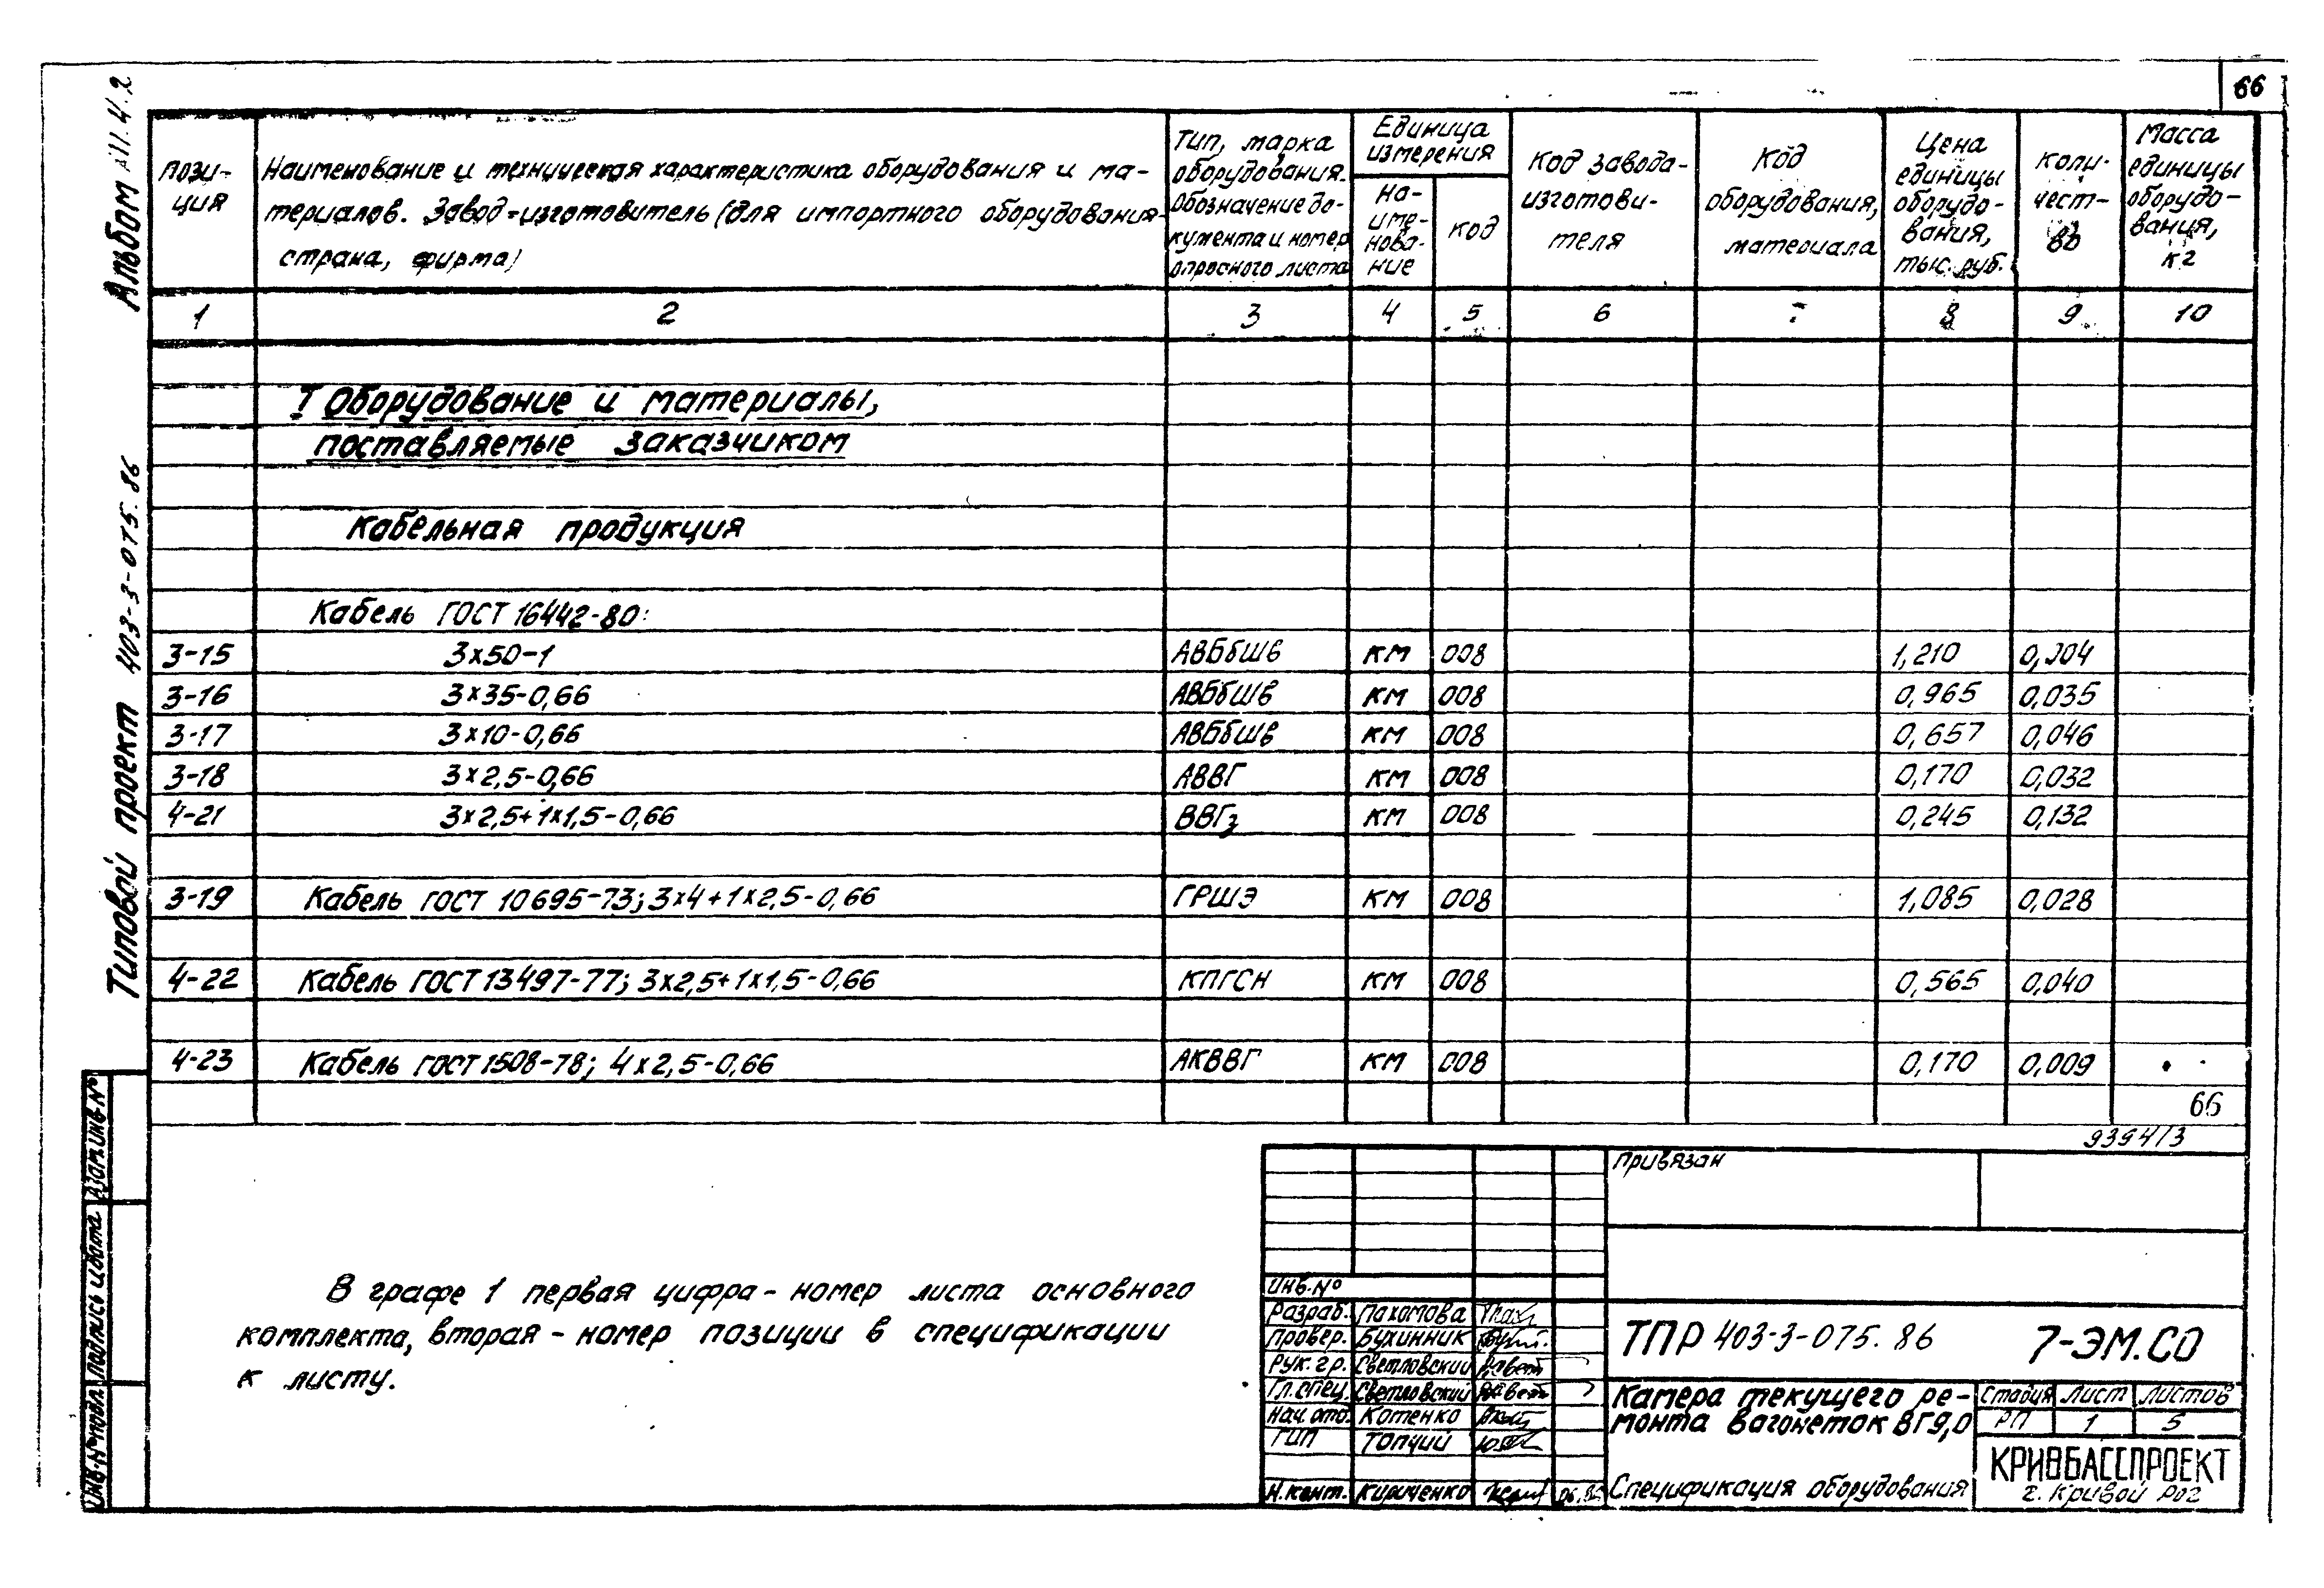 66
Альбом III.4.2
Типовой проект 403-3-075.86
Пози-ция
Наименование и техническая характеристика оборудования и ма-
териалов. Завод-изготовитель (для импортного оборудования-
страна, фирма)
Тип, марка
оборудования.
Обозначение до-
кумента и номер
опросного листа
Единица
измерения
На-
име-
нова-
ние
код
Код завода-
изготови-
теля
Код
оборудования,
материала
Цена
единицы
оборудо-
вания,
тыс. руб.
Коли-
чест-
во
Масса
единицы
оборудо-
вания,
кг
1 2 3 4 5 6 8 9 10
I Оборудование и материалы,
поставляемые заказчиком
Кабельная продукция
Кабель ГОСТ 16442-80:
3-15 3х50-1 АВБбШв км 008 1,210 0,004
3-16 3х35-0,66 АВБбШв км 008 0,965 0,035
3-17 3х10-0,66 АВБбШв км 008 0,657 0,046
3-18 3х2,5-0,66 АВВГ км 008 0,170 0,032
4-21 3х2,5+1х1,5-0,66 ВВГз км 008 0,245 0,132
3-19 Кабель ГОСТ 10695-73; 3х4+1х2,5-0,66 ГРШЭ км 008 1,085 0,028
4-22 Кабель ГОСТ 13497-77; 3х2,5+1х1,5-0,66 КПГСН км 008 0,565 0,040
4-23 Кабель ГОСТ 1508-78; 4х2,5-0,66 АКВВГ км 008 0,170 0,009
66
9394/3
В графе 1 первая цифра - номер листа основного
комплекта, вторая - номер позиции в спецификации
к листу.
Привязан
Инв.№
Разраб. Пахомова
Провер. Бухинник
Рук.гр. Светловский
Гл.спец. Светловский
Нач.отд. Котенко
ГИП Топчий
Н.конт. Кириченко
ТПР 403-3-075.86
7-ЭМ.СО
Камера текущего ре-
монта вагонеток ВГ9,0
Стадия Лист Листов
РП 1 5
Спецификация оборудования
КРИВБАССПРОЕКТ
г. Кривой Рог
Взам.инв.№
Подпись и дата
Инв.№ подл.